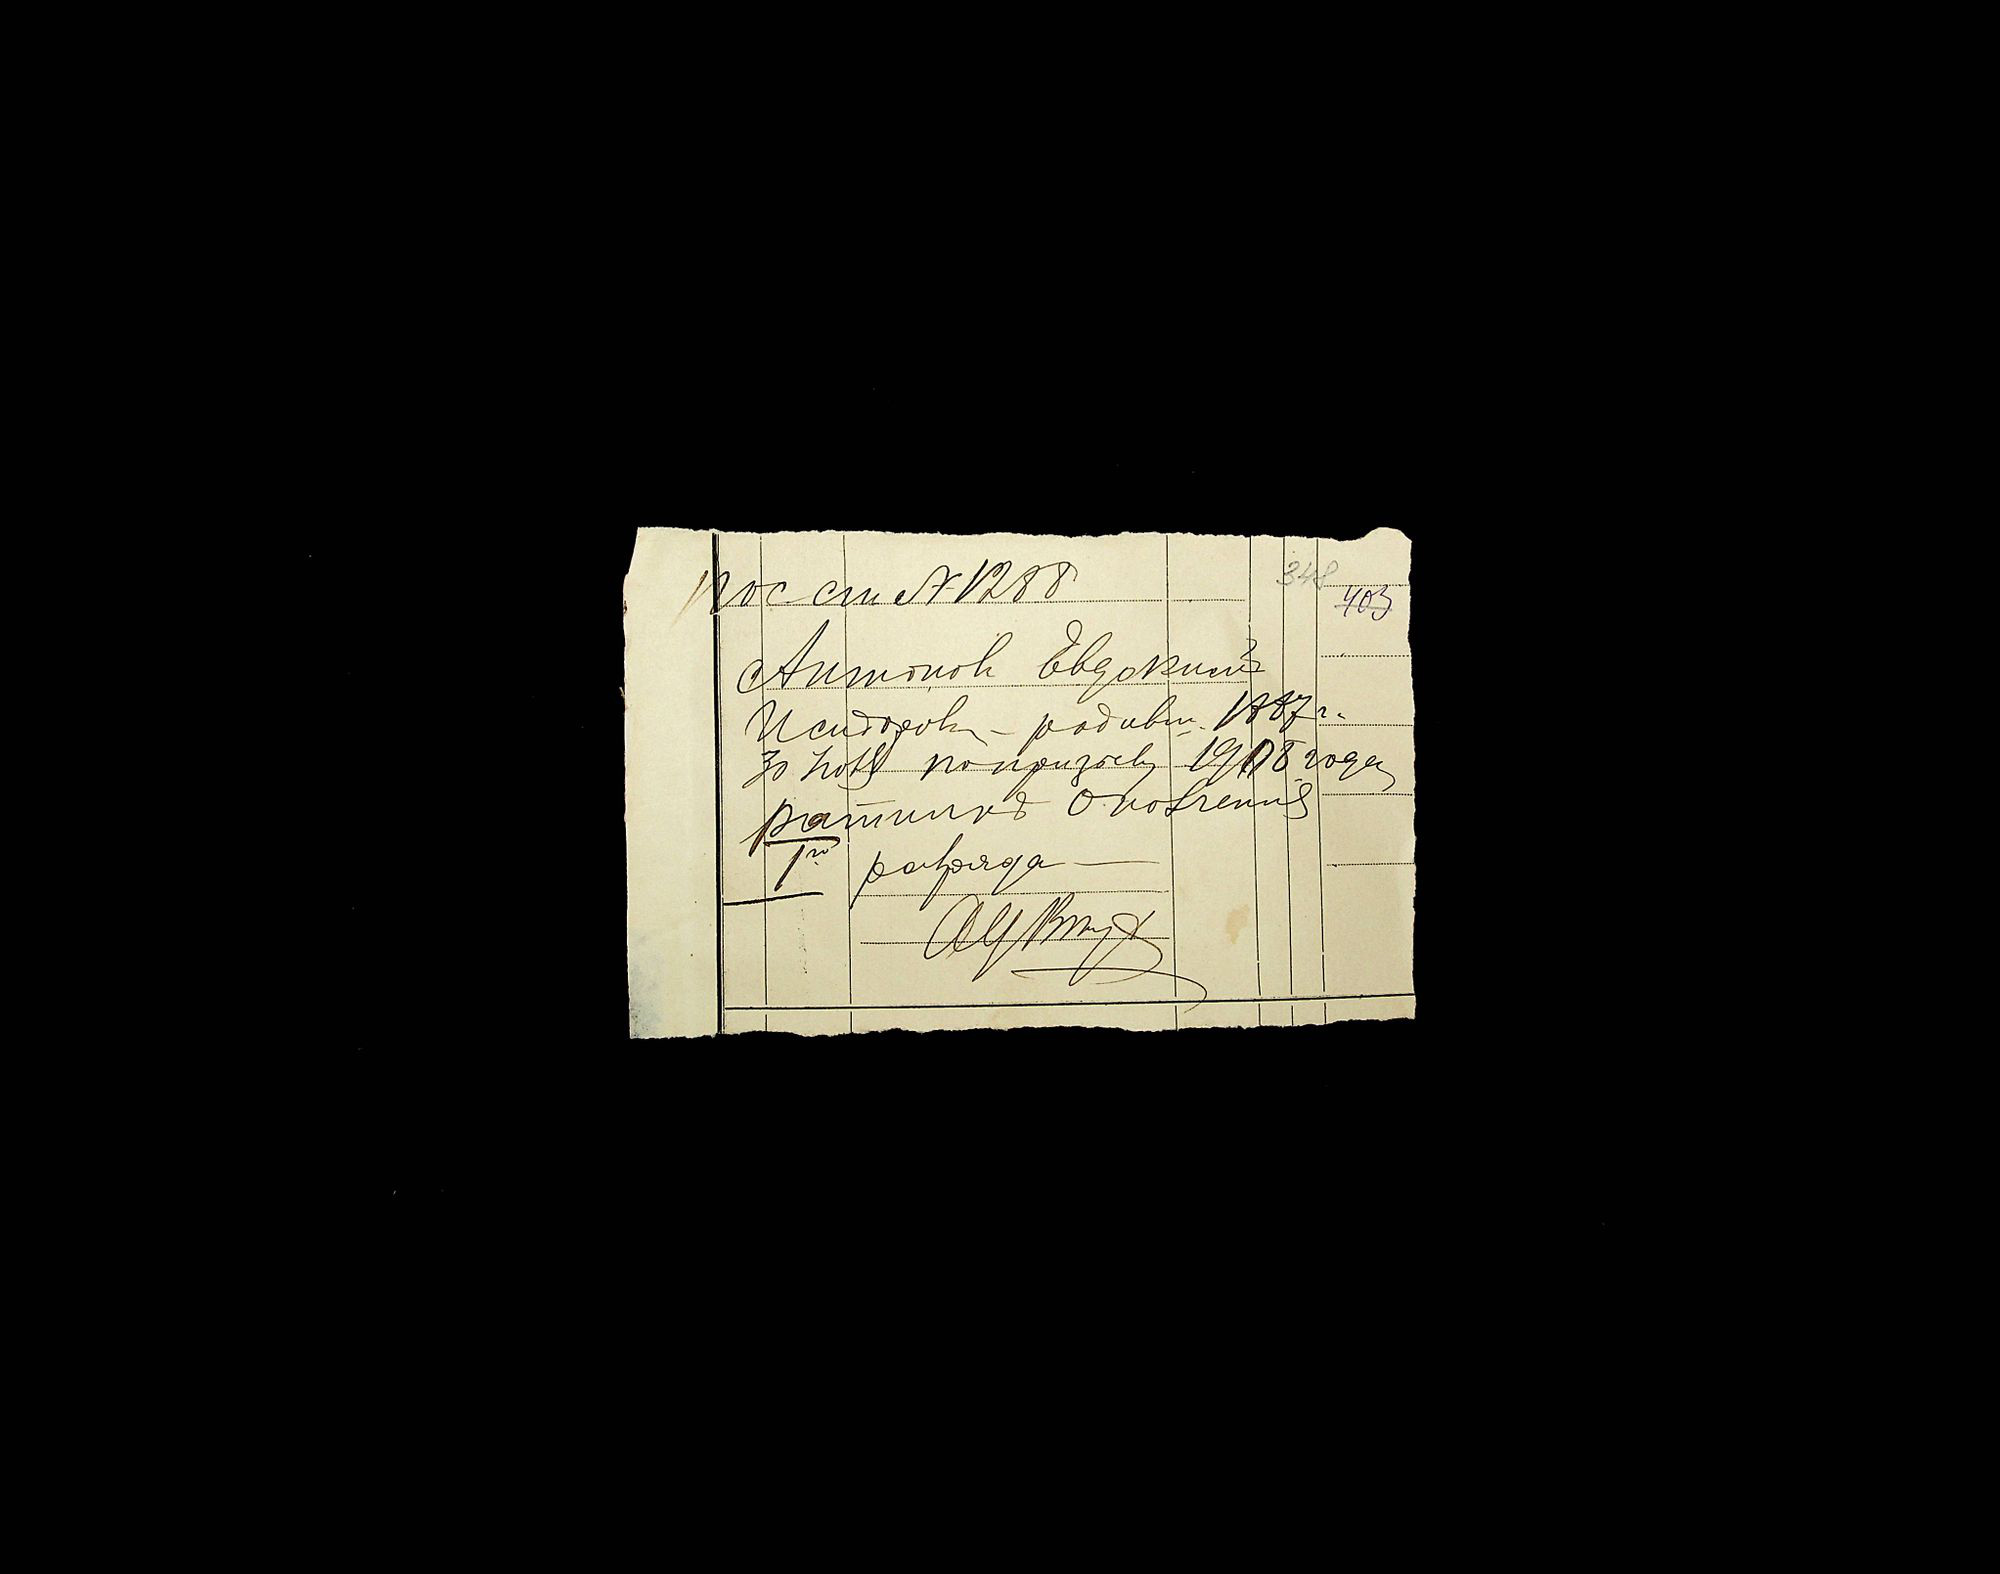 пос сп № 1288
348
403
Антонов Евдоким
Исидоров – родивш. 1887 г.
30 Нояб по призыву 1908 года
ратникъ Ополчения
1го разряда —